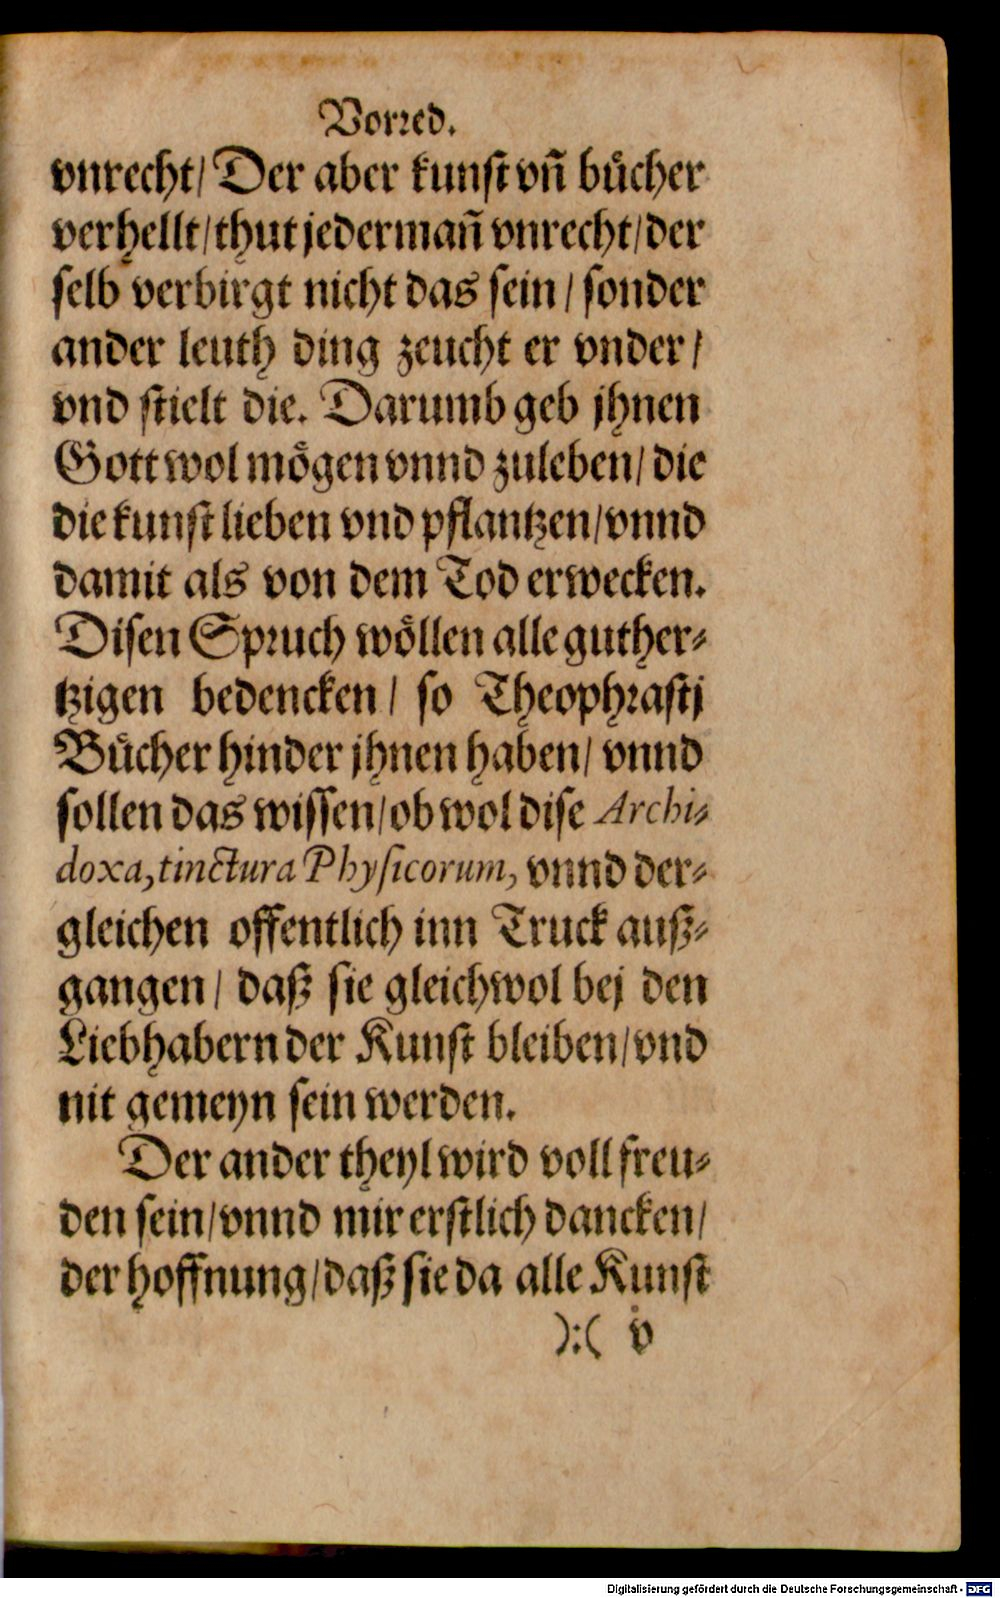 Vorꝛed.
vnrecht/ Der aber kunſt vñ buͤcher
verhellt/ thut jedermañ vnrecht/ der
ſelb verbirgt nicht das ſein/ ſonder
ander leuth ding zeucht er vnder/
vnd ſtielt die. Darumb geb jhnen
Gott wol moͤgen vnnd zuleben/ die
die kunſt lieben vnd pflantzen/ vnnd
damit als von dem Tod erwecken.
Diſen Spꝛuch woͤllen alle guther⸗
tzigen bedencken/ ſo Theophꝛaſtj
Buͤcher hinder jhnen haben/ vnnd
ſollen das wiſſen/ ob wol diſe Archi⸗
doxa, tinctura Phyſicorum, vnnd der⸗
gleichen offentlich inn Truck auß⸗
gangen/ daß ſie gleichwol bej den
Liebhabern der Kunſt bleiben/ vnd
nit gemeyn ſein werden.
Der ander theyl wird voll freu⸗
den ſein/ vnnd mir erſtlich dancken/
der hoffnung/ daß ſie da alle Kunſt
):( v
Digitalisierung gefördert durch die Deutsche Forschungsgemeinschaft - DFG